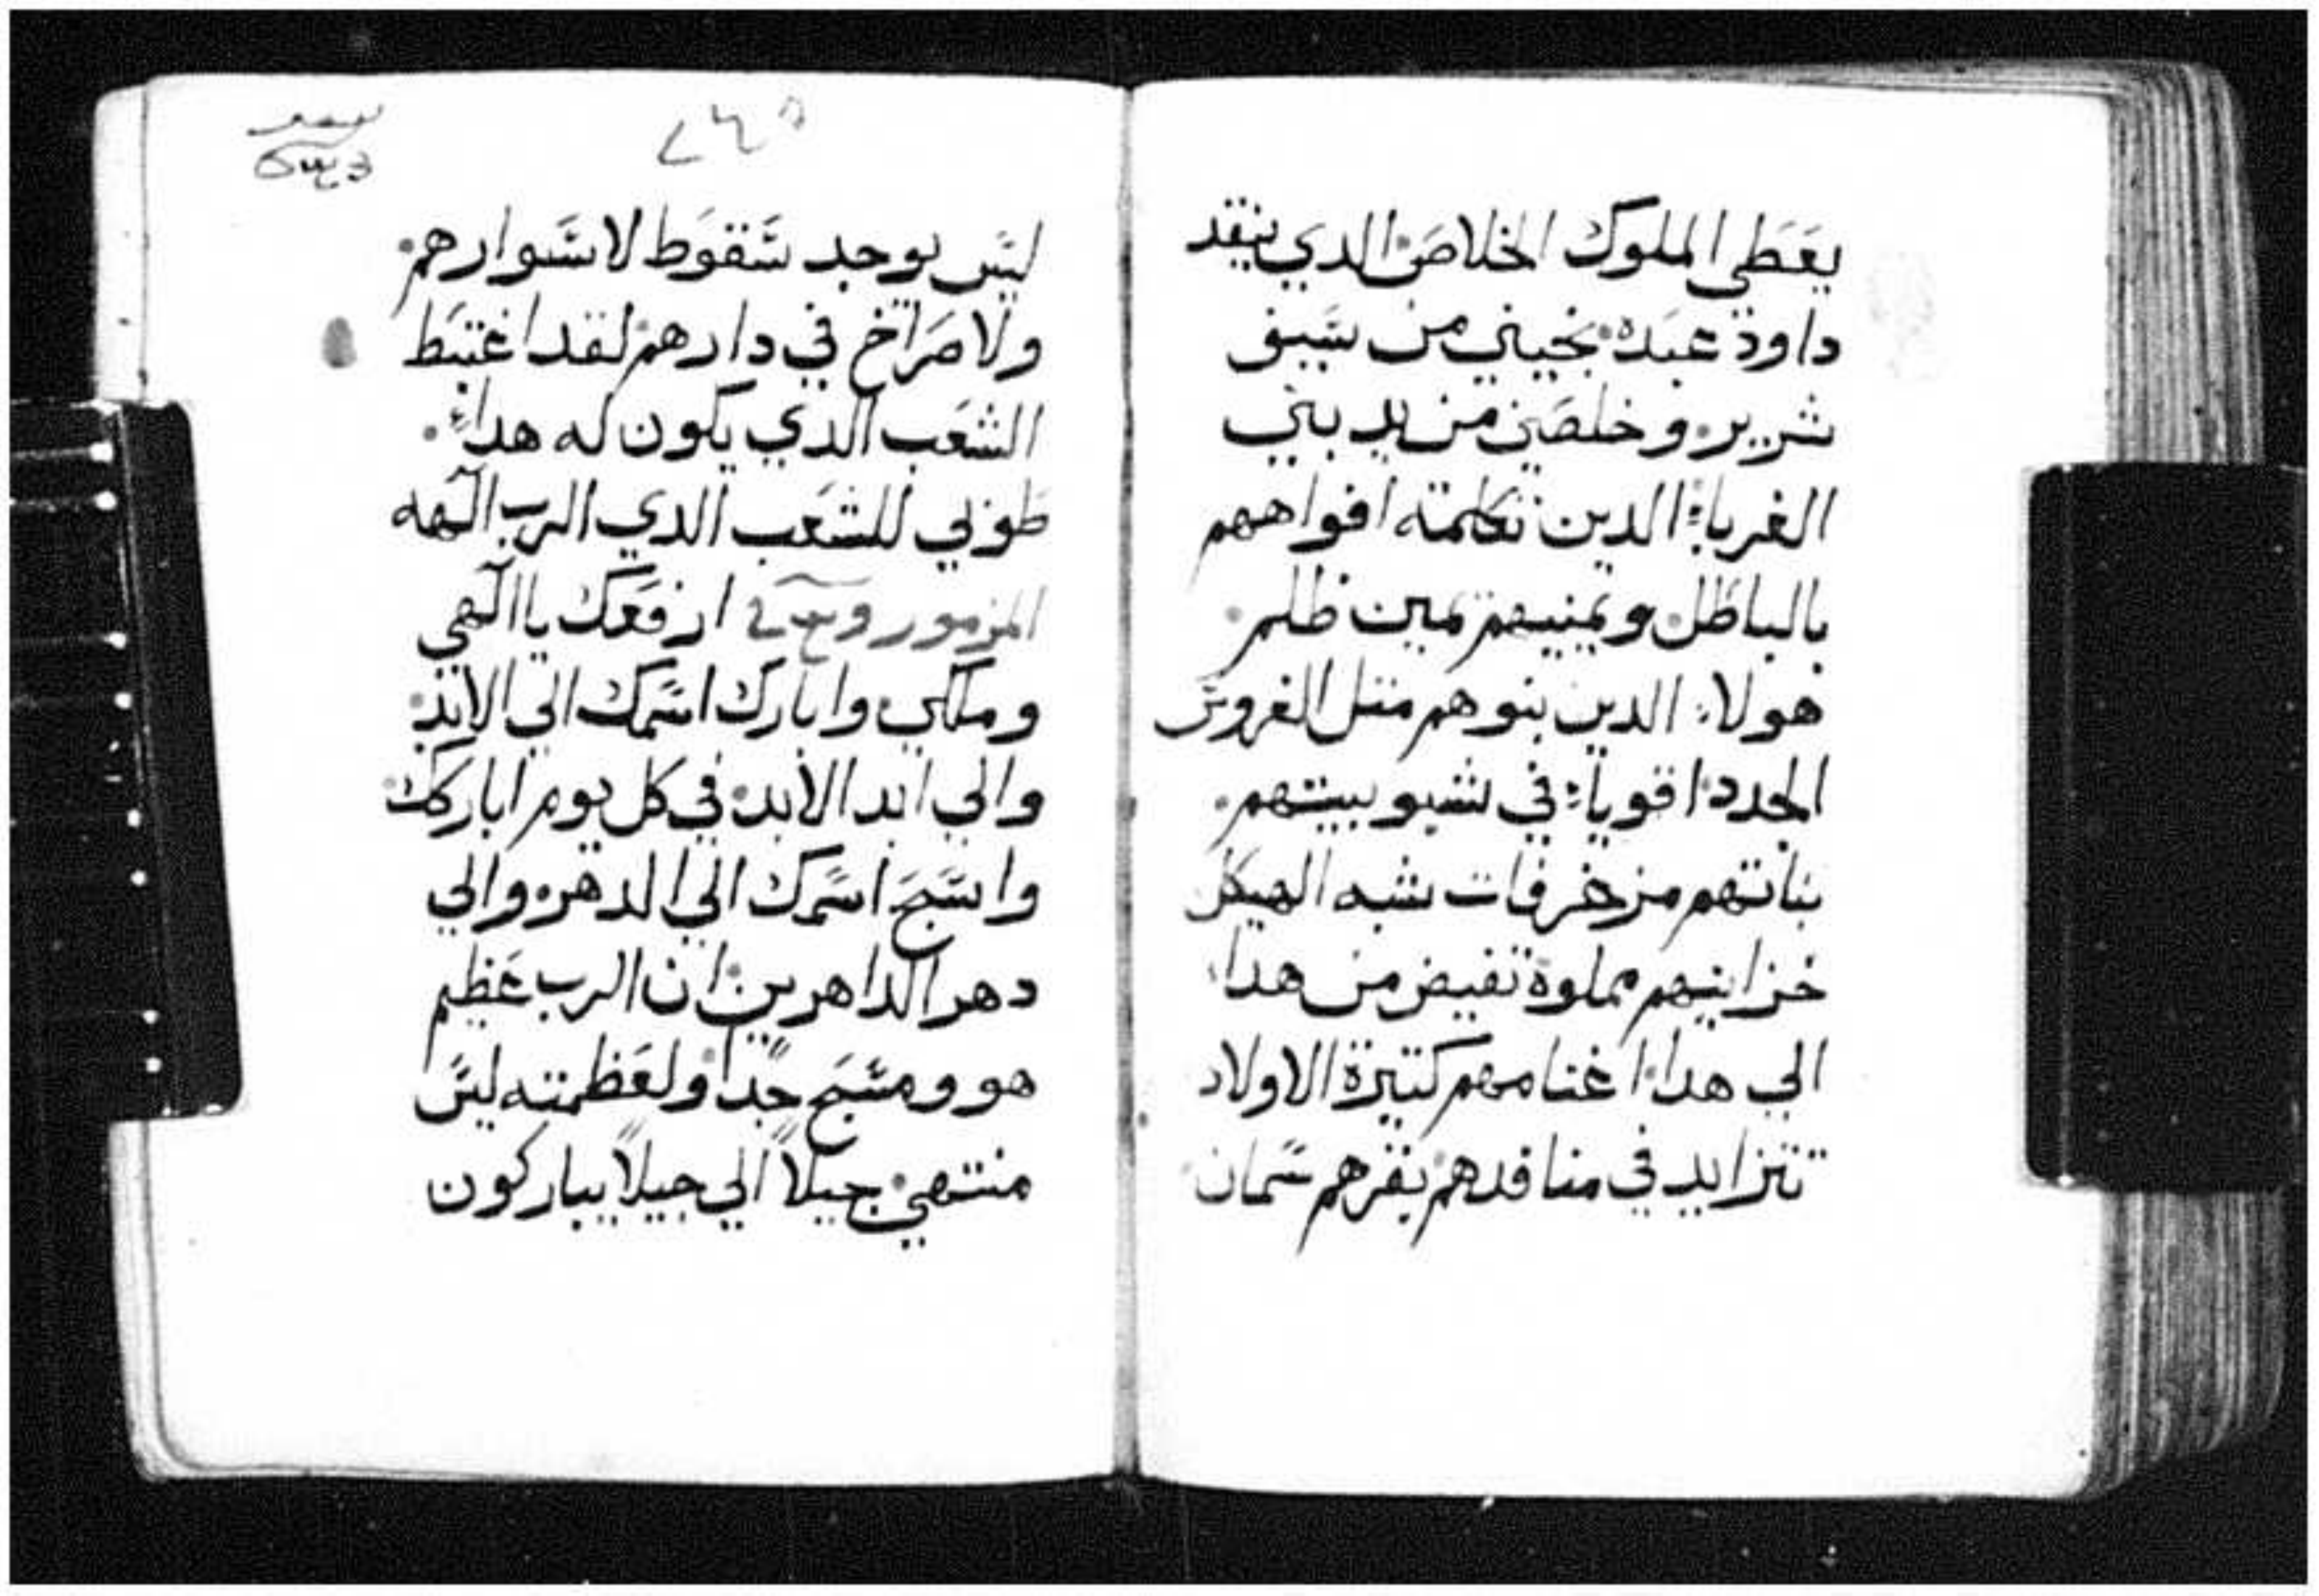 يعطي الملوك الخلاص الدي ينقد
داود عبده نجيني من سيف
شرير وخلصني من يد بني
الغرباء الدين تكلمت افواههم
بالباطل ويمنيهم يمين ظلم
هولاء الدين بنوهم متل الغروس
الجدد اقوياء في شبوبيتهم
بناتهم مزخرفات شبه الهيكل
خزاينهم مملوة تفيض من هدا
الي هدا اغنامهم كتيرة الاولاد
تتزايد في منافدهم بقرهم سمان
ليس يوجد سقوط لاسوارهم
ولا صراخ في دارهم لقد اغتبط
الشعب الدي يكون له هداء
طوبي للشعب الدي الرب الهه
المزمور ارفعك يا الهي
وملكي وابارك اسمك الي الابد
والي ابد الابد في كل يوم اباركك
واسبح اسمك الي الدهر والي
دهر الداهرين ان الرب عظيم
هو ومسبح جداً ولعظمته ليس
منتهي جيلاً الي جيلاً يباركون